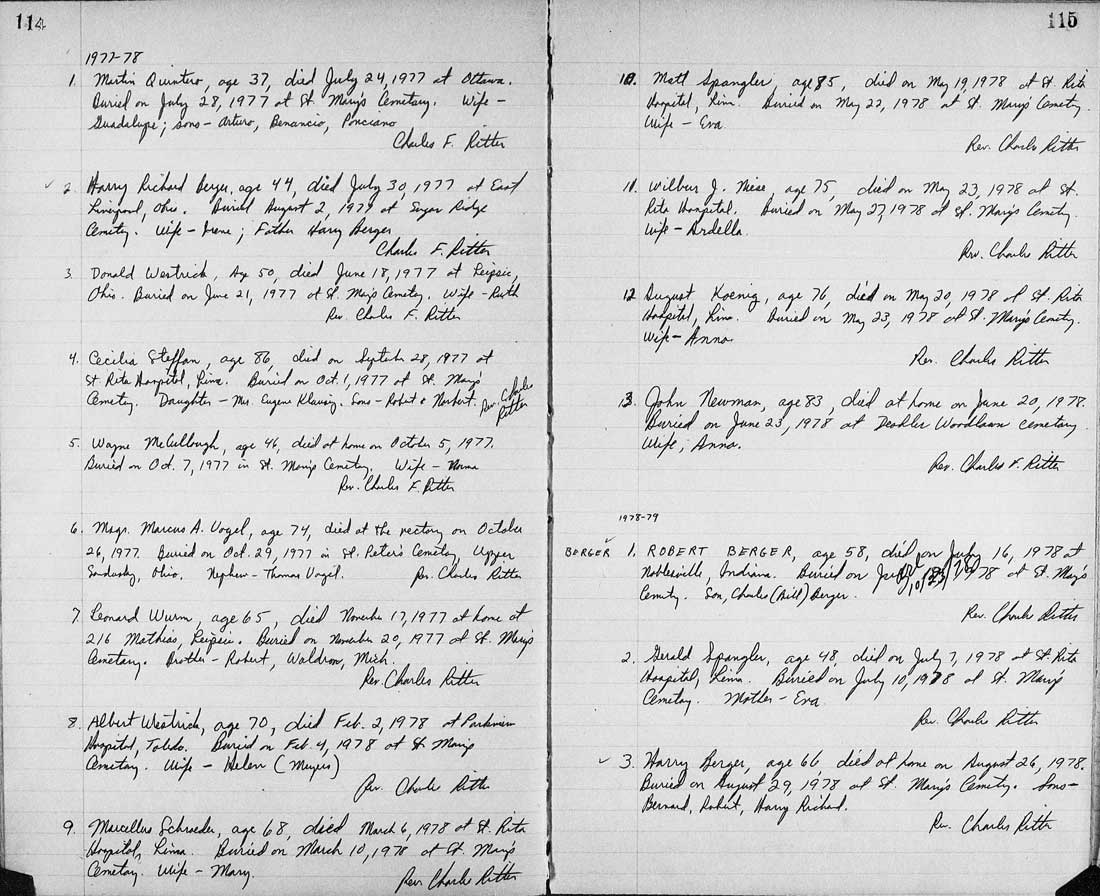 114
1977-78
1. Martin Quintero, age 37, died July 24, 1977 at Ottawa.
Buried on July 28, 1977 at St. Mary's Cemetary. Wife -
Guadalupe; sons - Arturo, Benancio, Ponciano
Charles F. Ritter
✓ 2. Harry Richard Berger, age 44, died July 30, 1977 at East
Liverpool, Ohio. Buried August 2, 1977 at Sugar Ridge
Cemetery. Wife - Irene; Father Harry Berger
Charles F. Ritter
3. Donald Westrick, Age 50, died June 18, 1977 at Leipsic,
Ohio. Buried on June 21, 1977 at St. Mary's Cemetery. Wife - Ruth
Rev. Charles F. Ritter
4. Cecilia Steffan, age 86, died on September 28, 1977 at
St Rita Hospital, Lima. Buried on Oct. 1, 1977 at St. Mary's
Cemetery. Daughter - Mrs. Eugene Klausing. Sons - Robert & Norbert. Rev. Charles
Ritter
5. Wayne McCullough, age 46, died at home on October 5, 1977.
Buried on Oct. 7, 1977 in St. Mary's Cemetery. Wife - Norma
Rev. Charles F. Ritter
6. Msgr. Marcus A. Vogel, age 74, died at the rectory on October
26, 1977. Buried on Oct. 29, 1977 in St. Peter's Cemetery, Upper
Sandusky, Ohio. Nephew - Thomas Vogel. Rev. Charles Ritter
7. Leonard Wurm, age 65, died November 17, 1977 at home at
216 Mathias, Leipsic. Buried on November 20, 1977 at St. Mary's
Cemetary. Brother - Robert, Waldron, Mich.
Rev. Charles Ritter
8. Albert Westrick, age 70, died Feb. 2, 1978 at Parkview
Hospital, Toledo. Buried on Feb. 4, 1978 at St Mary's
Cemetary. Wife - Helen (Meyers)
Rev. Charles Ritter
9. Marcellus Schroeder, age 68, died March 6, 1978 at St. Rita
Hospital, Lima. Buried on March 10, 1978 at St. Mary's
Cemetary. Wife - Mary.
Rev. Charles Ritter
115
10. Matt Spangler age 85, died on May 19, 1978 at St. Rita
Hospital, Lima. Buried on May 22, 1978 at St. Mary's Cemetery.
Wife - Eva.
Rev. Charles Ritter
11. Wilbur J. Niese, age 75, died on May 23, 1978 at St.
Rita Hospital. Buried on May 27, 1978 at St. Mary's Cemetery.
Wife - Ardella.
Rev. Charles Ritter
12. August Koenig, age 76, died on May 20, 1978 at St. Rita
Hospital, Lima. Buried on May 23, 1978 at St. Mary's Cemetery.
Wife - Anna.
Rev. Charles Ritter
13. John Newman, age 83, died at home on June 20, 1978.
Buried on June 23, 1978 at Deshler Woodlawn cemetary.
Wife, Anna.
Rev. Charles F. Ritter
1978-79
✓
BERGER 1. ROBERT BERGER, age 58, died on July 16, 1978 at
Noblesville, Indiana. Buried on 1978 at St. Mary's
Cemetery. Son, Charles (Bill) Berger.
Rev. Charles Ritter
2. Gerald Spangler, age 48, died on July 7, 1978 at St. Rita
Hospital, Lima. Buried on July 10, 1978 at St. Mary's
Cemetary. Mother - Eva
Rev. Charles Ritter
✓ 3. Harry Berger, age 66, died at home on August 26, 1978.
Buried on August 29, 1978 at St. Mary's Cemetery. Sons -
Bernard, Robert, Harry Richard.
Rev. Charles Ritter